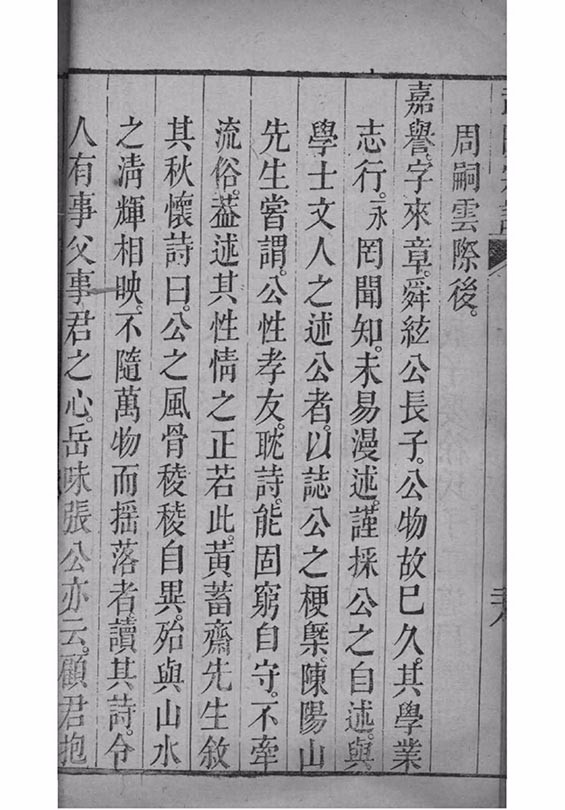 周嗣雲際後。
嘉譽。字來章。舜絃公長子。公物故已久。其學業
志行。永罔聞知。未易漫述。謹採公之自述。與
學士文人之述公者。以誌公之梗槩。陳陽山
先生嘗謂。公性孝友。耽詩。能固窮自守。不牽
流俗。葢述其性情之正若此。黃蓄齋先生敘
其秋懷詩曰。公之風骨稜稜自異。殆與山水
之清輝相映。不隨萬物而搖落者。讀其詩。令
人有事父事君之心。岳味張公亦云。顧君抱